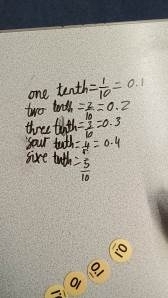 one tenth = 1/10 = 0.1
two tenth = 2/10 = 0.2
three tenth = 3/10 = 0.3
four tenth = 4/ = 0.4
sixe tenth = 5/10
0.1
0.1
10